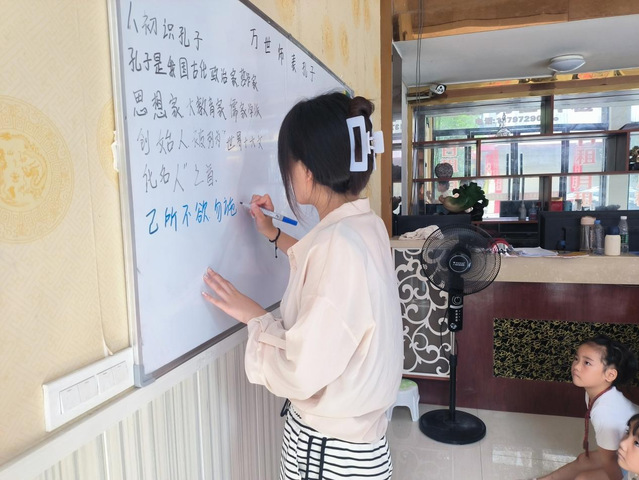 万世师表孔子
初识孔子
孔子是我国古代政治家
思想家 大教育家 儒家学派
创始人 被列为 世界十大文
化名人"之首.
己所不欲 勿施